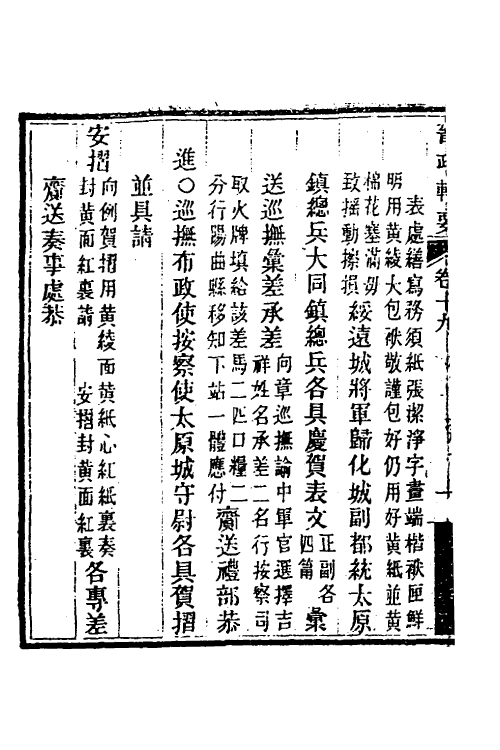 晉政輯要 卷十九
表處繕寫務須紙張潔淨字畫端楷袱匣鮮
明用黃綾大包袱敬謹包好仍用好黃紙並黃
棉花塞滿毋
致摇動擦損綏遠城將軍歸化城副都統太原
鎮總兵大同鎮總兵各具慶賀表文正副各
四篇彙
送巡撫彙差承差向章巡撫諭中軍官選擇吉
祥姓名承差二名行按察司
取火牌填給該差馬二匹口糧二
分行陽曲縣移知下站一體應付齎送禮部恭
進○巡撫布政使按察使太原城守尉各具賀摺
並具請
安摺向例賀摺用黃綾面黃紙心紅紙裏奏
封黃面紅裏請 安摺封黃面紅裏各專差
齎送奏事處恭